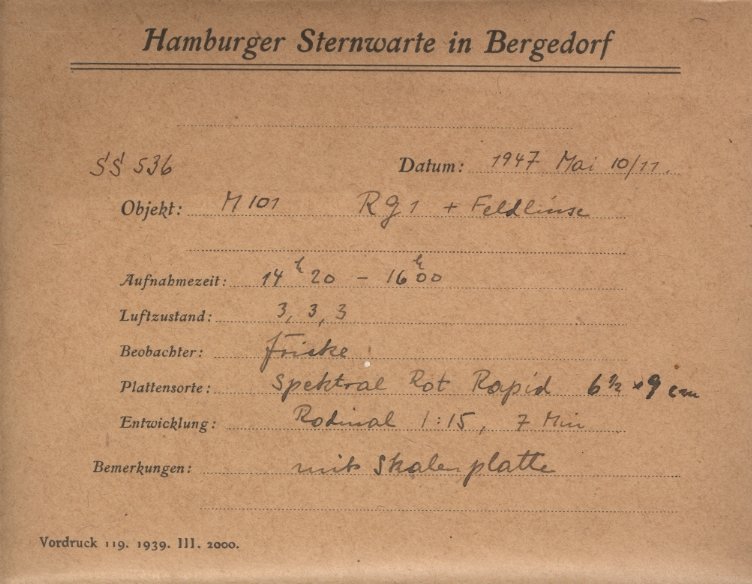 Hamburger Sternwarte in Bergedorf
SS 536 Datum: 1947 Mai 10/11.
Objekt: M 101 Rg1 + Feldlinse
Aufnahmezeit: 14h 20 - 16h 00
Luftzustand: 3, 3, 3
Beobachter:
Plattensorte: Spektral Rot Rapid 6½ x 9 cm
Entwicklung: Rodinal 1:15, 7 Min
Bemerkungen: mit Skalenplatte
Vordruck 119. 1939. III. 2000.